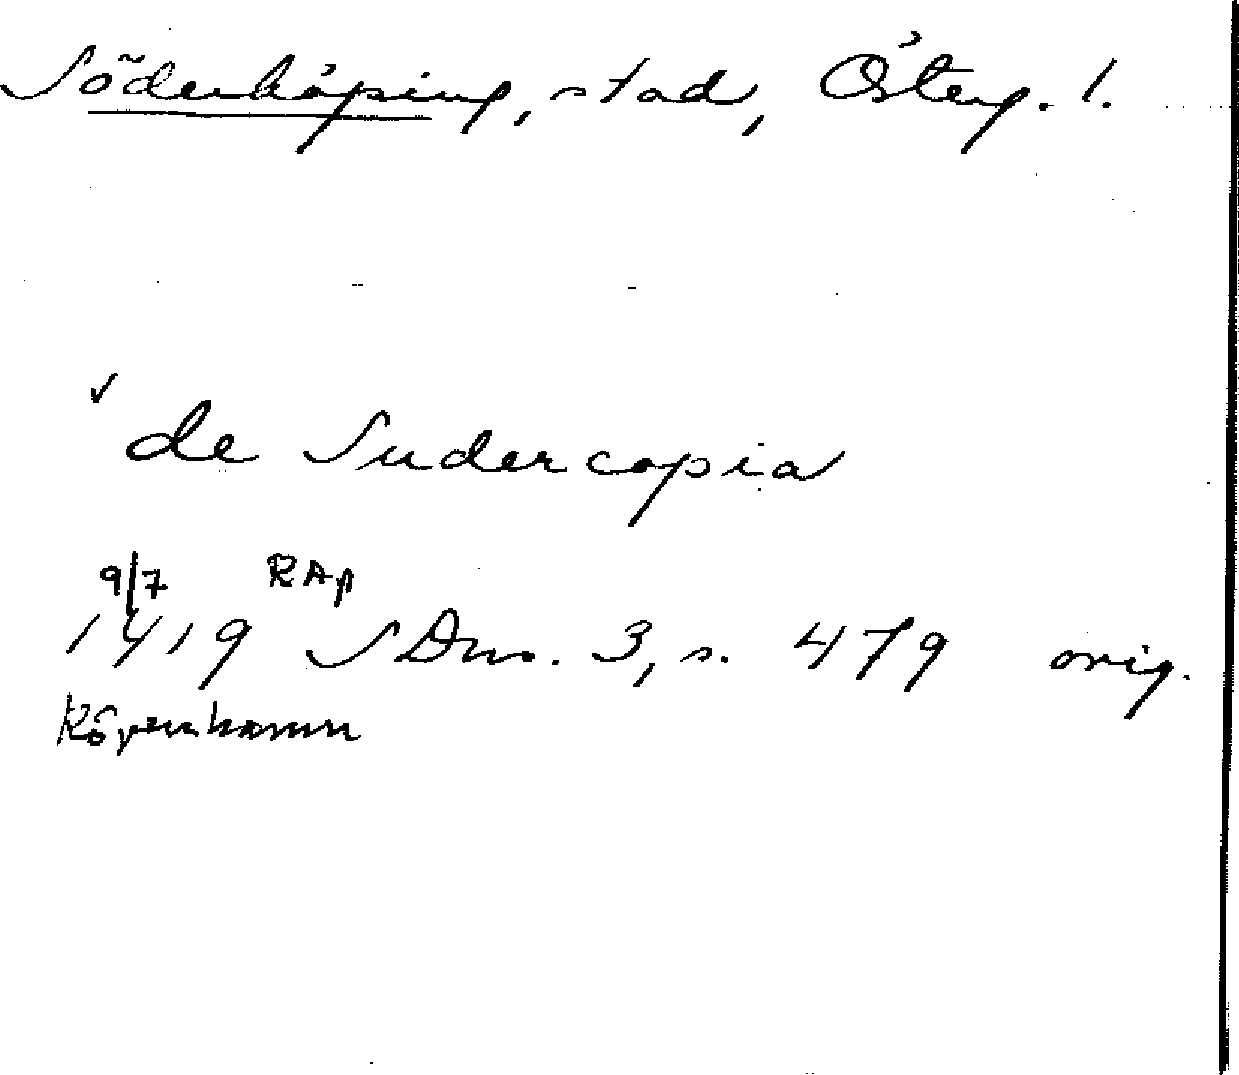 Söderköping, stad, Österg. l.
de Sudercopia
9/7 RAp
1419 SDns. 3, s. 479 orig.
Köpenhamn